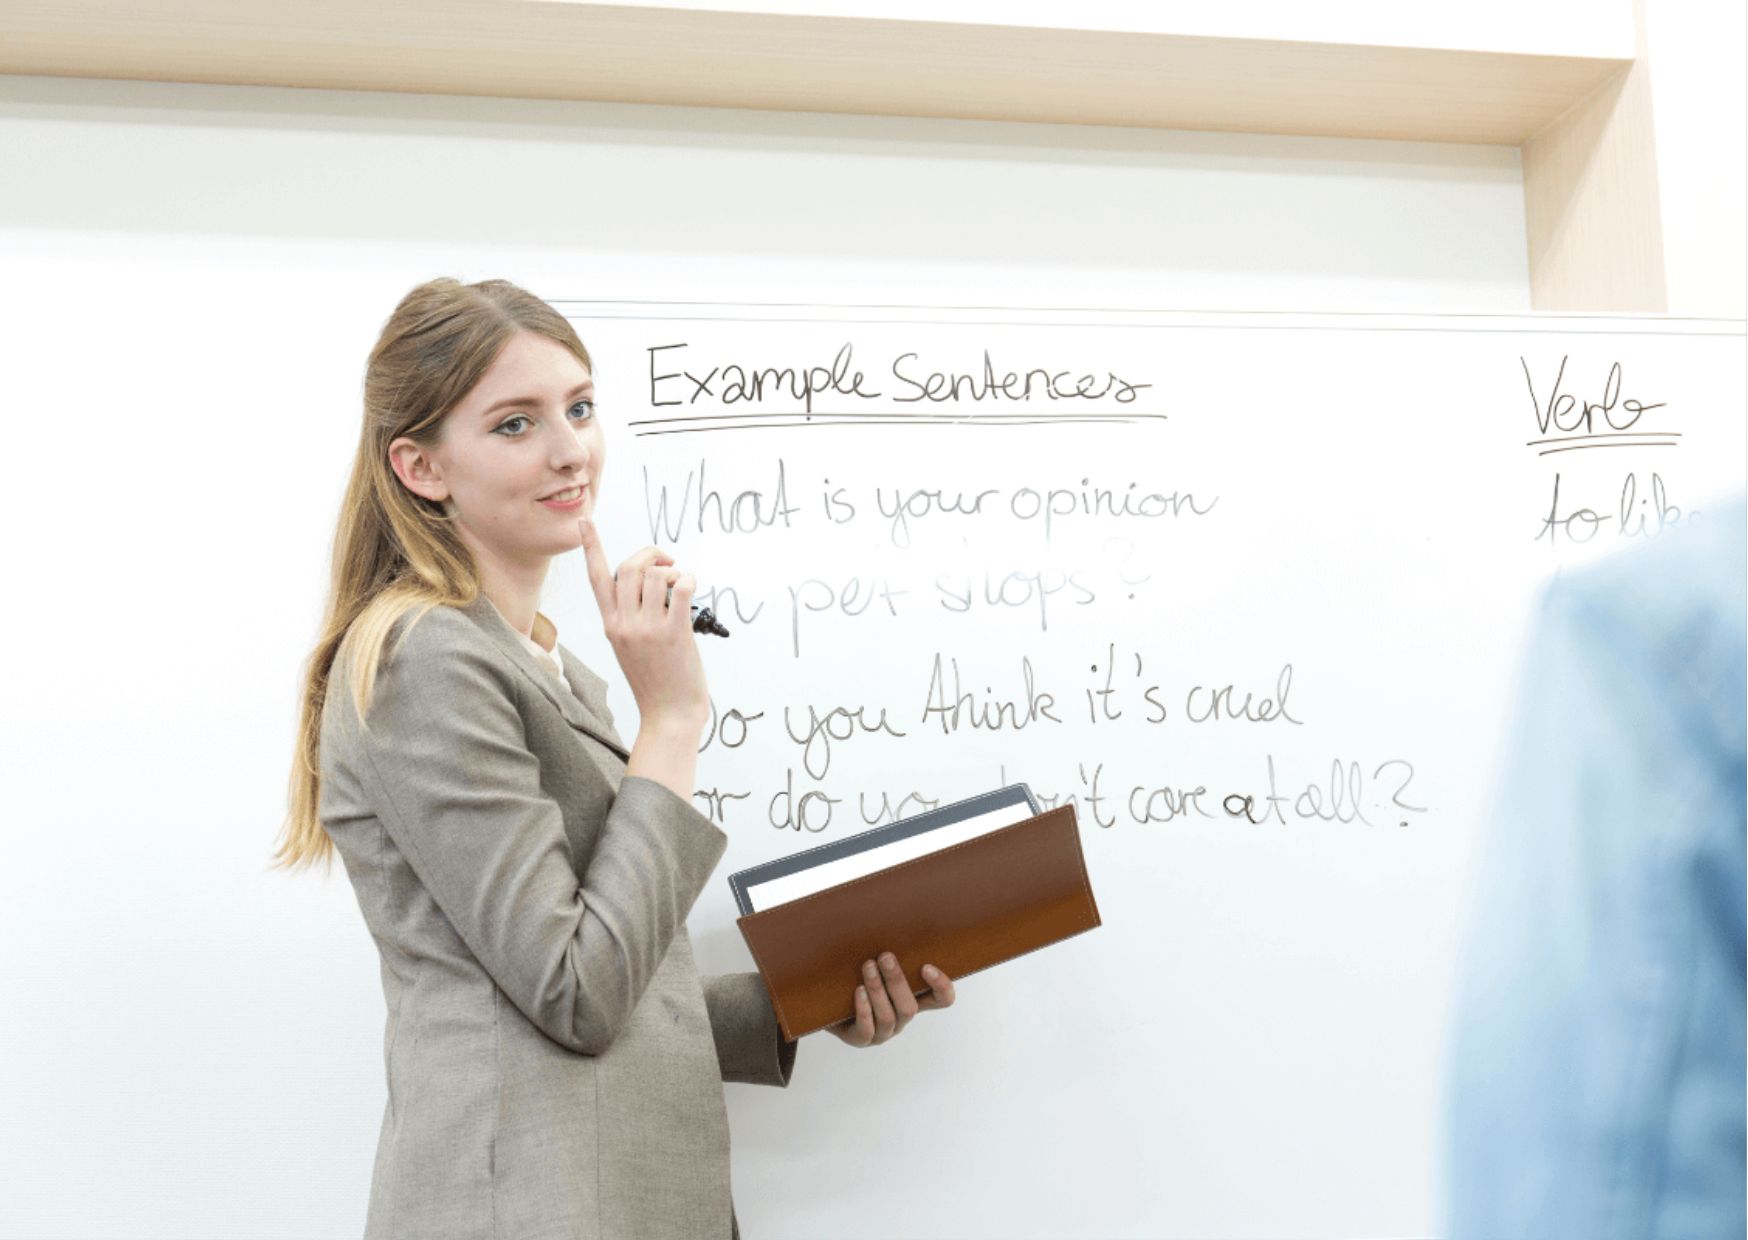 Example Sentences
What is your opinion
pet shops?
you think it's cruel
or do care at all?
Verb
to